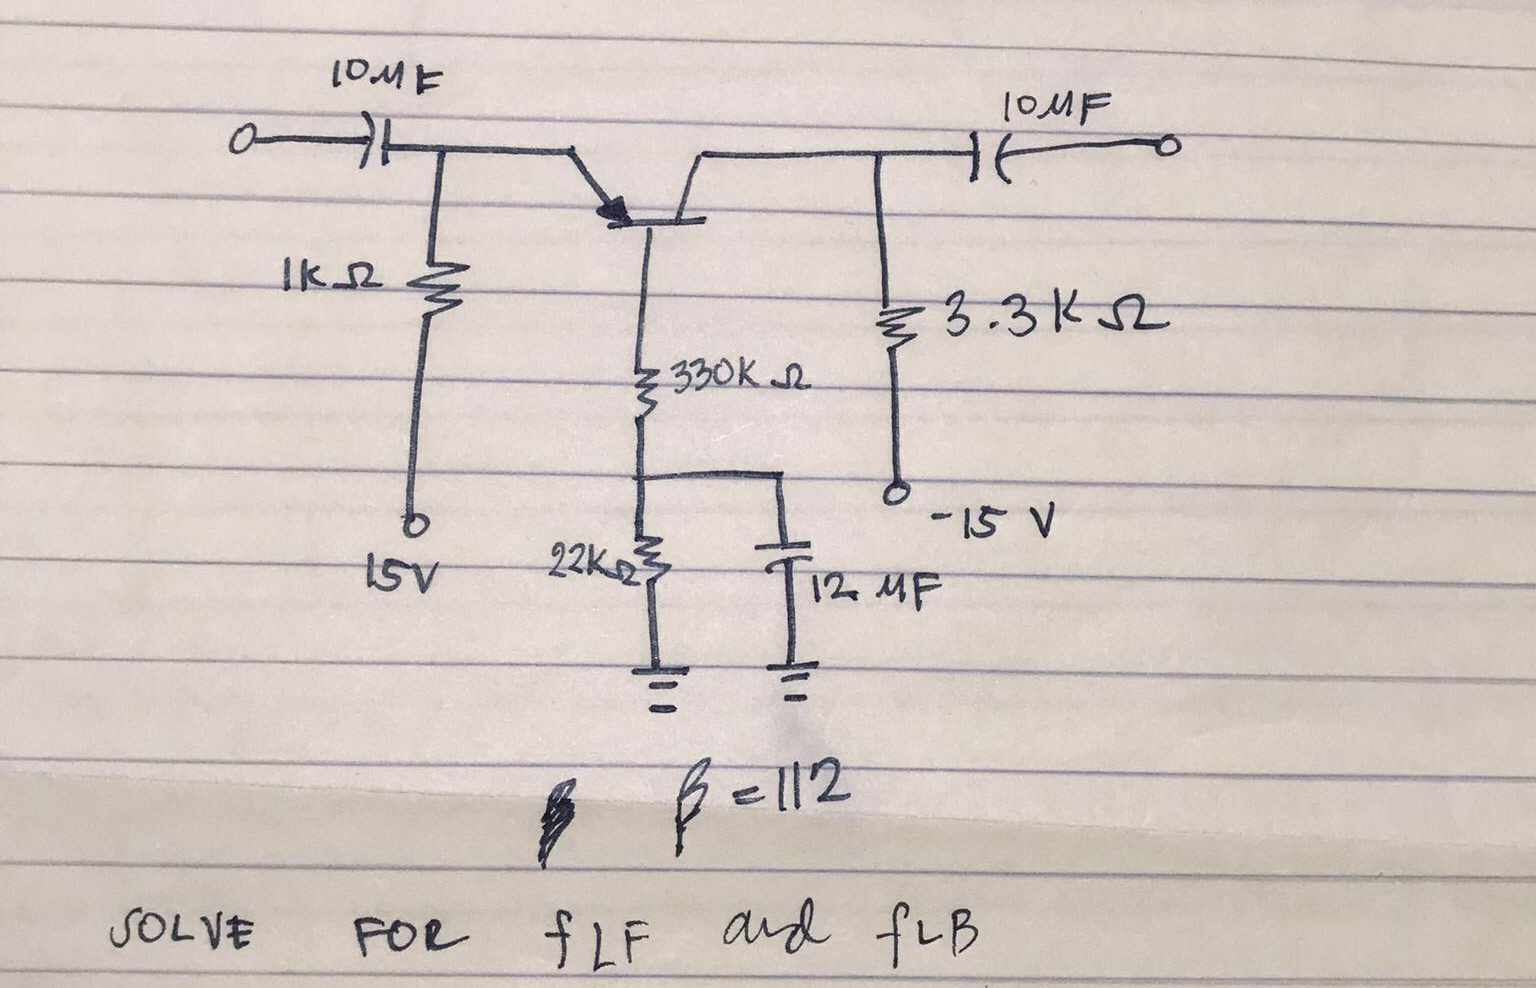 10μF
10μF
1KΩ
3.3KΩ
330KΩ
-15 V
22KΩ
15V
12 μF
β = 112
SOLVE FOR fLF and fLB